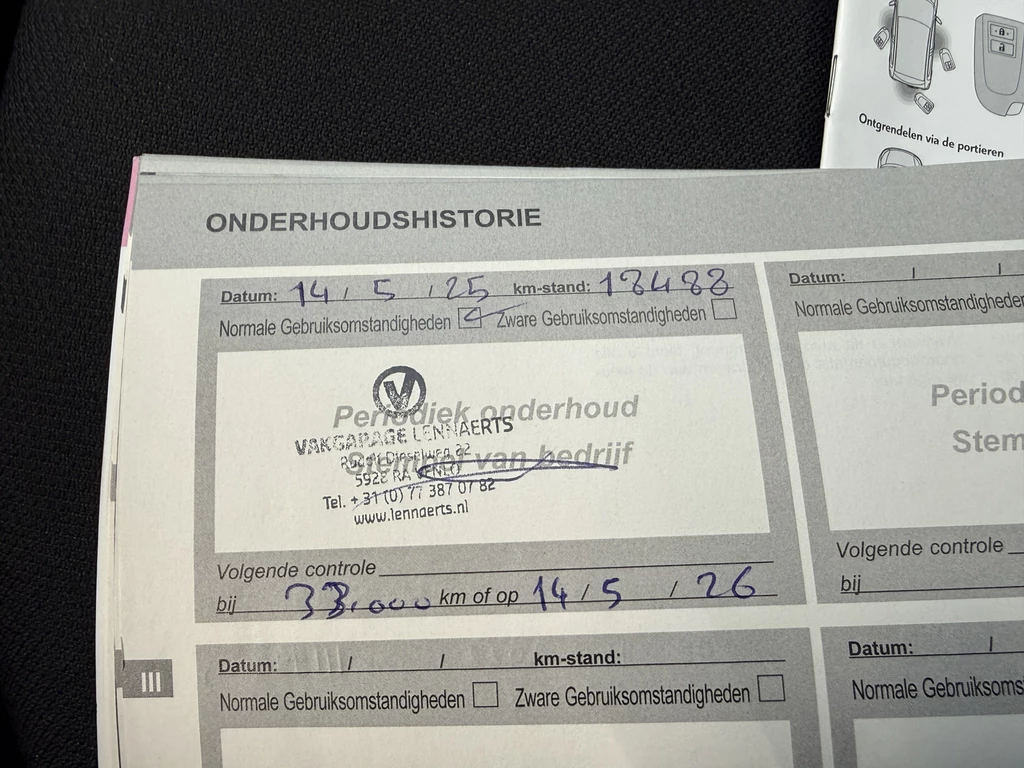 Ontgrendelen via de portieren
ONDERHOUDSHISTORIE
Datum: 14 / 5 / 25 km-stand: 18488
Normale Gebruiksomstandigheden Zware Gebruiksomstandigheden
V
Periodiek onderhoud
VAKGARAGE LENNAERTS
Rudolf Dieselweg 22
Stempel van bedrijf
5928 RA VENLO
Tel. +31 (0) 77 387 07 82
www.lennaerts.nl
Volgende controle
bij 33.000 km of op 14 / 5 / 26
Datum: / /
Normale Gebruiksomstandigheden
Period
Stem
Volgende controle
bij
III
Datum: / / km-stand:
Normale Gebruiksomstandigheden Zware Gebruiksomstandigheden
Datum: /
Normale Gebruiksoms